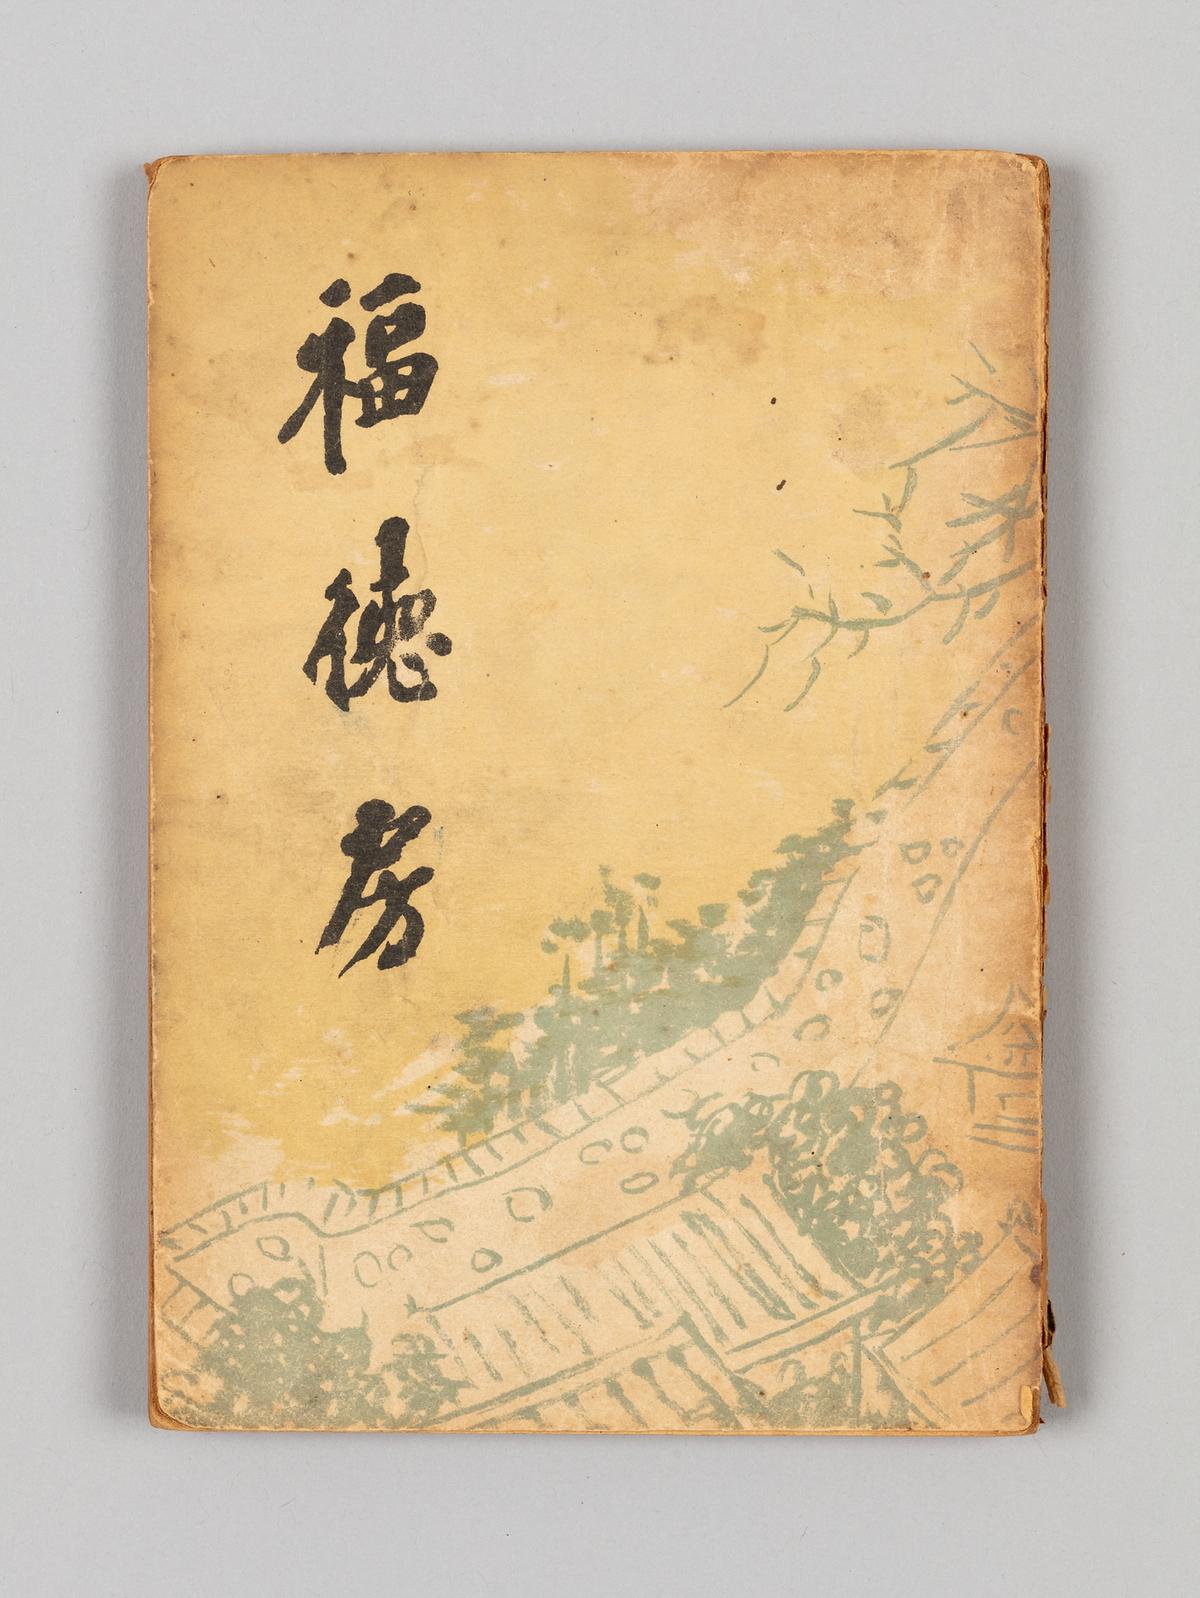 福德房